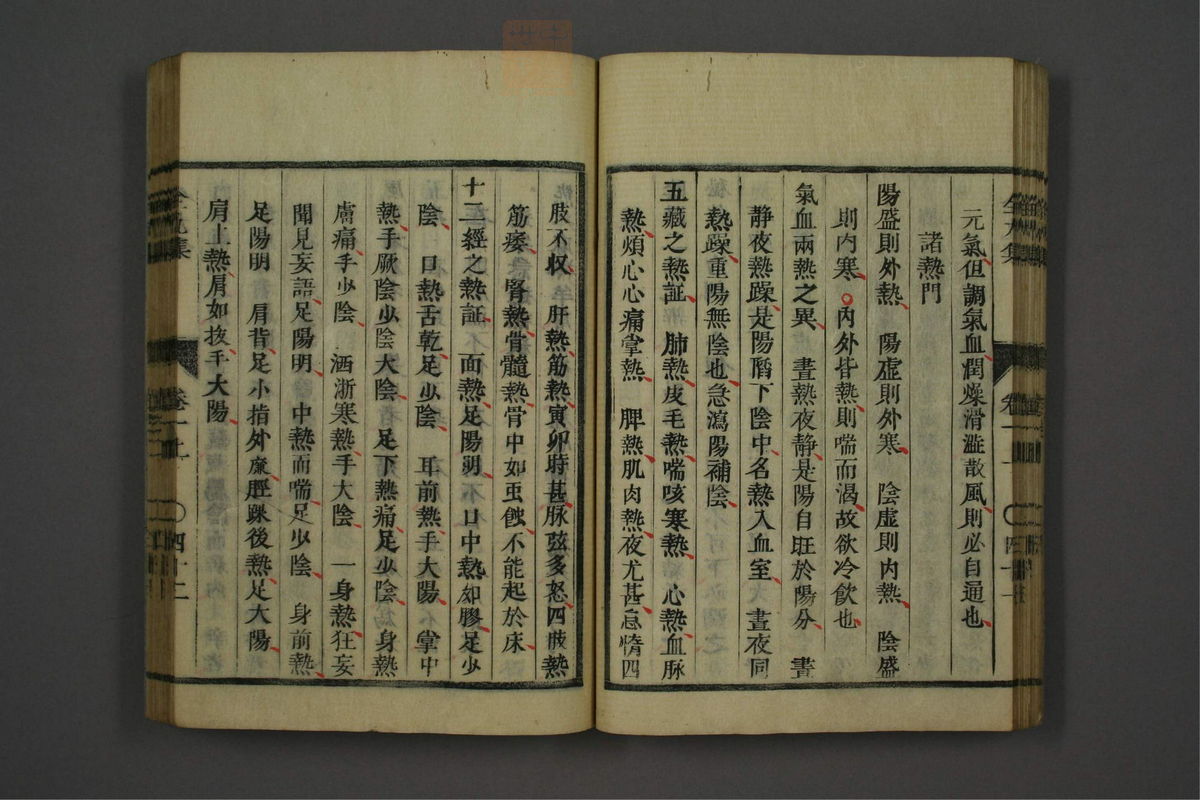 元氣但調氣血潤燥滑澁散風則必自通也
諸熱門
陽盛則外熱 陽虛則外寒 陰虛則內熱 陰盛
則內寒 ○內外皆熱則喘而渴故欲冷飲也
氣血兩熱之異 晝熱夜靜是陽自旺於陽分 晝
靜夜熱躁是陽陷下陰中名熱入血室 晝夜同
熱躁重陽無陰也急瀉陽補陰
五藏之熱証 肺熱皮毛熱喘咳寒熱 心熱血脉
熱煩心心痛掌熱 脾熱肌肉熱夜尤甚怠惰四
肢不収 肝熱筋熱寅卯時甚脉弦多怒四肢熱
筋痿 腎熱骨髓熱骨中如虫蝕不能起於床
十二經之熱証 面熱足陽明 口中熱如膠足少
陰 口熱舌乾足少陰 耳前熱手大陽 掌中
熱手厥陰少陰大陰 足下熱痛足少陰 身熱
膚痛手少陰 洒浙寒熱手大陰 一身熱狂妄
聞見妄語足陽明 中熱而喘足少陰 身前熱
足陽明 肩背足小指外廉脛踝後熱足大陽
肩上熱肩如拔手大陽
卷一上
○四十二